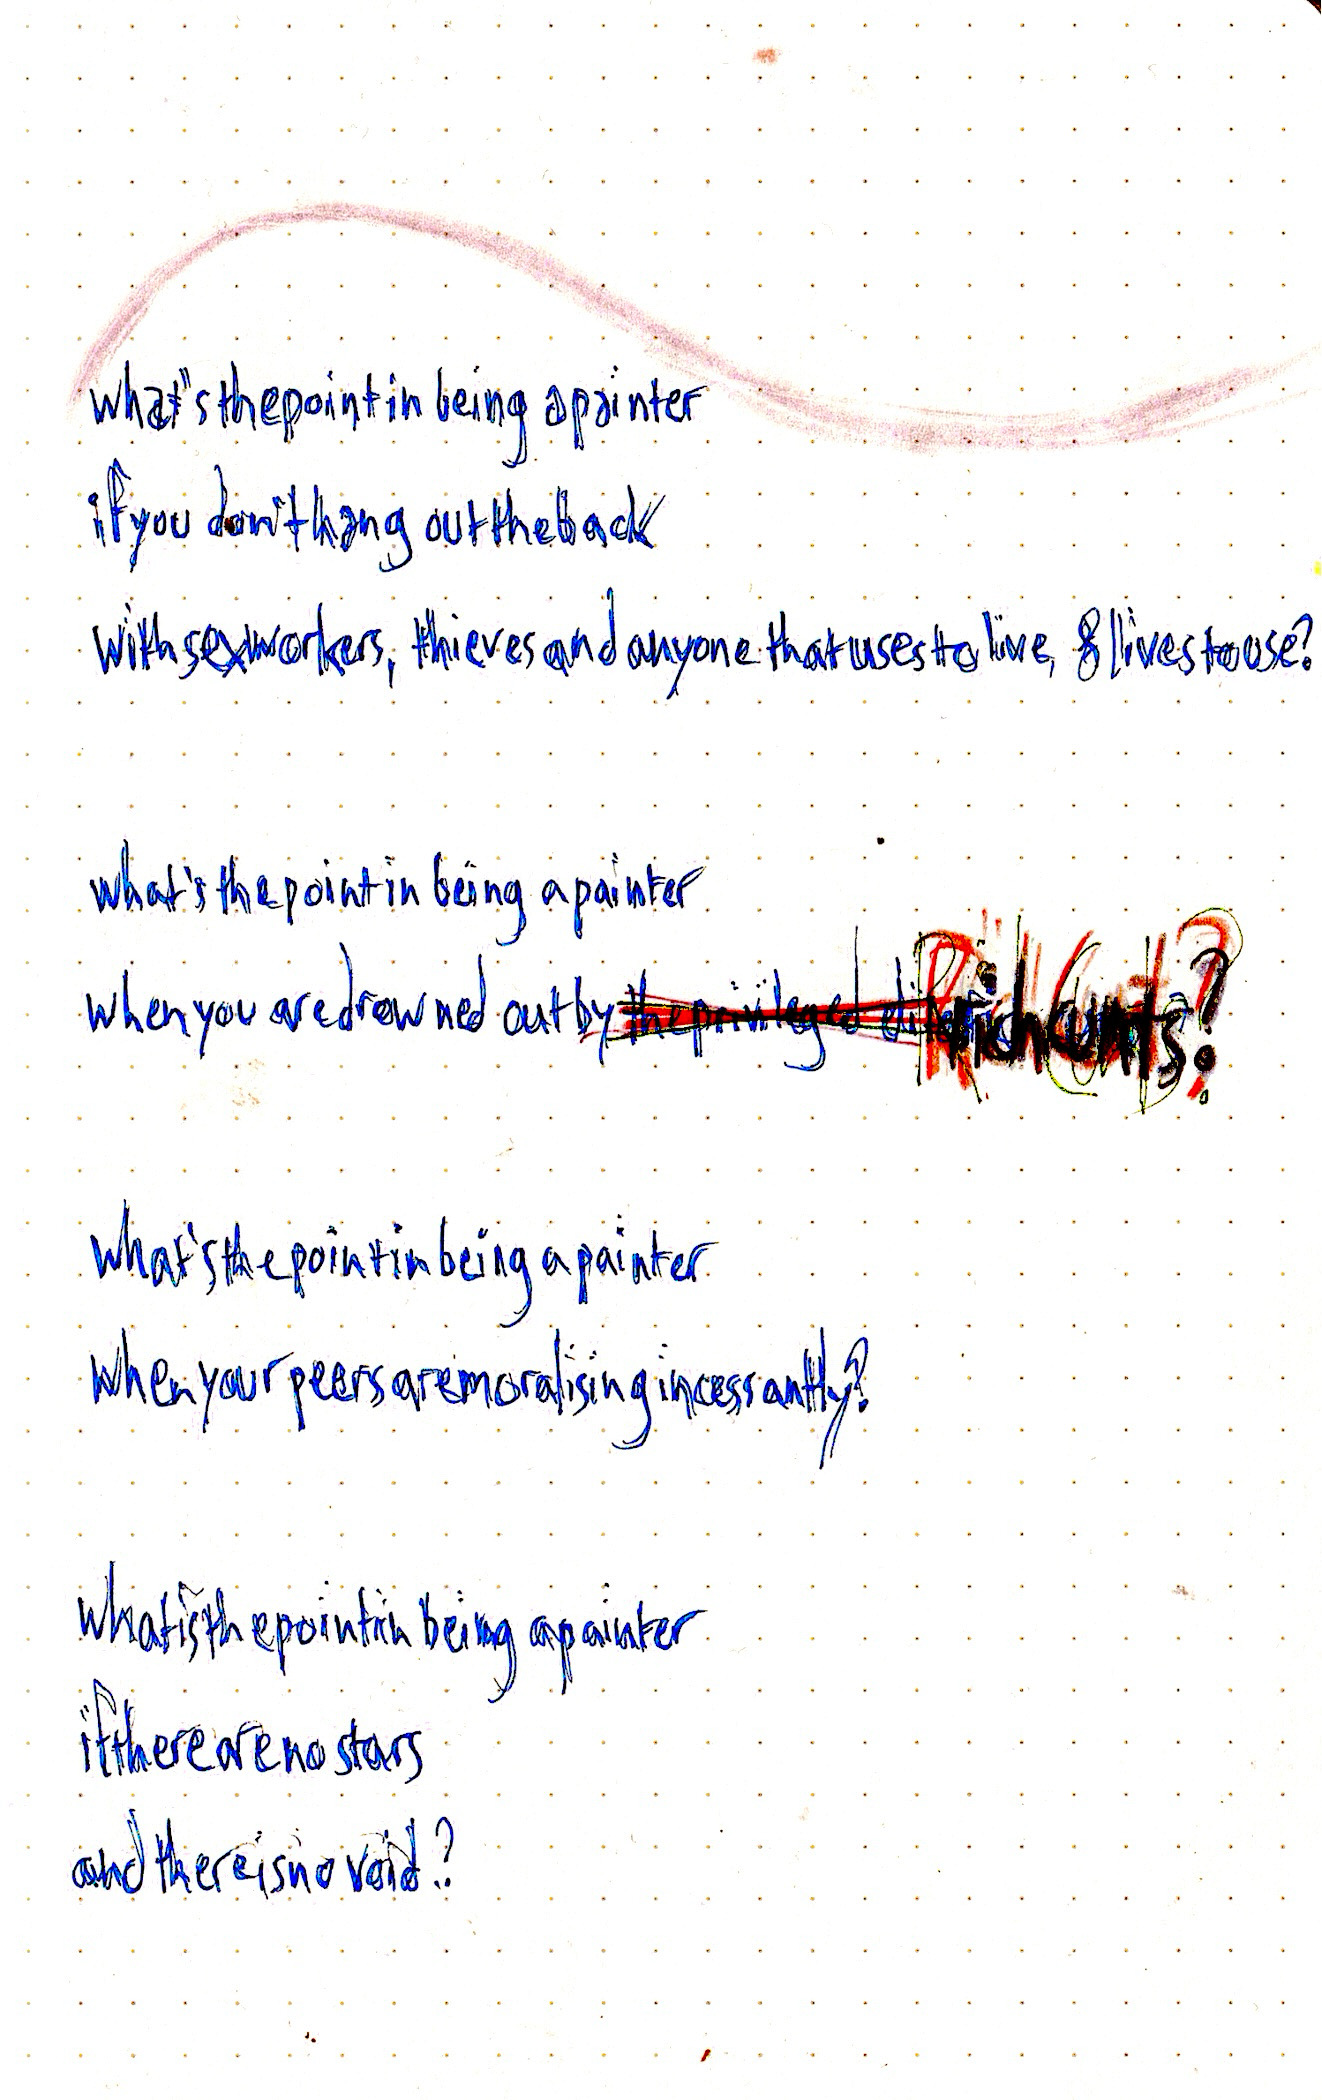 what's the point in being a painter
if you don't hang out the back
with sex workers, thieves and anyone that uses to live, & lives to use?
what's the point in being a painter
when you are drowned out by the privileged Rich Cunts?
what's the point in being a painter
when your peers are moralising incessantly?
what is the point in being a painter
if there are no stars
and there is no void?